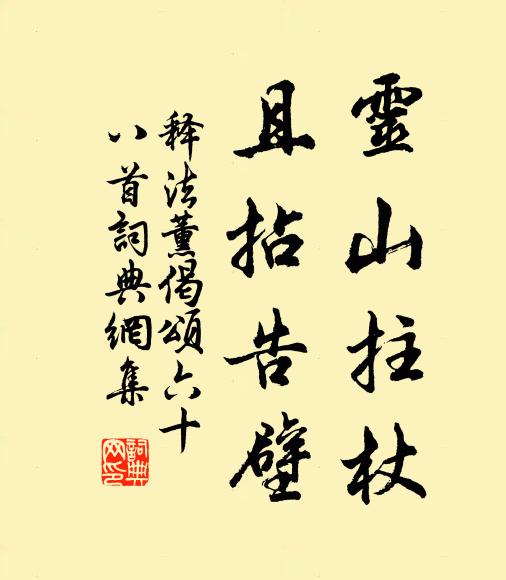 靈山拄杖
且拈告壁
释法薰偈頌六十
八首詞典網集
詞典
网印